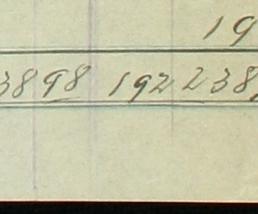 19
3898 192238